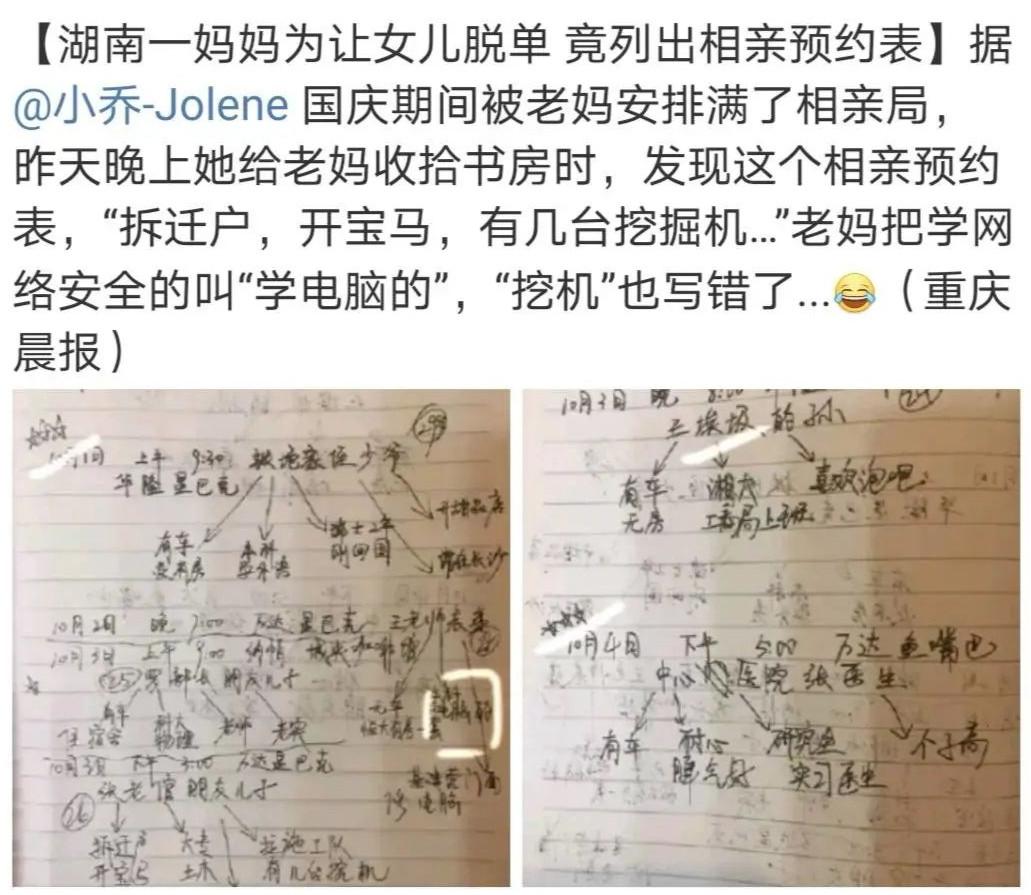 【湖南一妈妈为让女儿脱单 竟列出相亲预约表】据
@小乔-Jolene 国庆期间被老妈安排满了相亲局，
昨天晚上她给老妈收拾书房时，发现这个相亲预约
表，“拆迁户，开宝马，有几台挖掘机...”老妈把学网
络安全的叫“学电脑的”，“挖机”也写错了...😂（重庆
晨报）
10月1日 上午 9:30 少爷
华隆星巴克
有车 本科 硕士2年 开
刚回国 常住长沙
10月2日 晚 7:00 万达星巴克 王老师表亲
10月3日 上午 9:00 咖啡馆
25 朋友儿子
有车 科大 老师 老实 无车
住宿舍 物理
10月3日 下午 3:00 万达星巴克
张老馆朋友儿子
26
拆迁户 大专 在施工队
开宝马 土木 有几台挖机
门面
电脑
10月3日 晚 8:00
24
三埃级 的孙
有车 湘大 喜欢泡吧
无房 工商局上班
10月4日 下午 5:00 万达鱼嘴巴
中心医院 张医生
有车 耐心 研究生 个子高
脾气好 实习医生